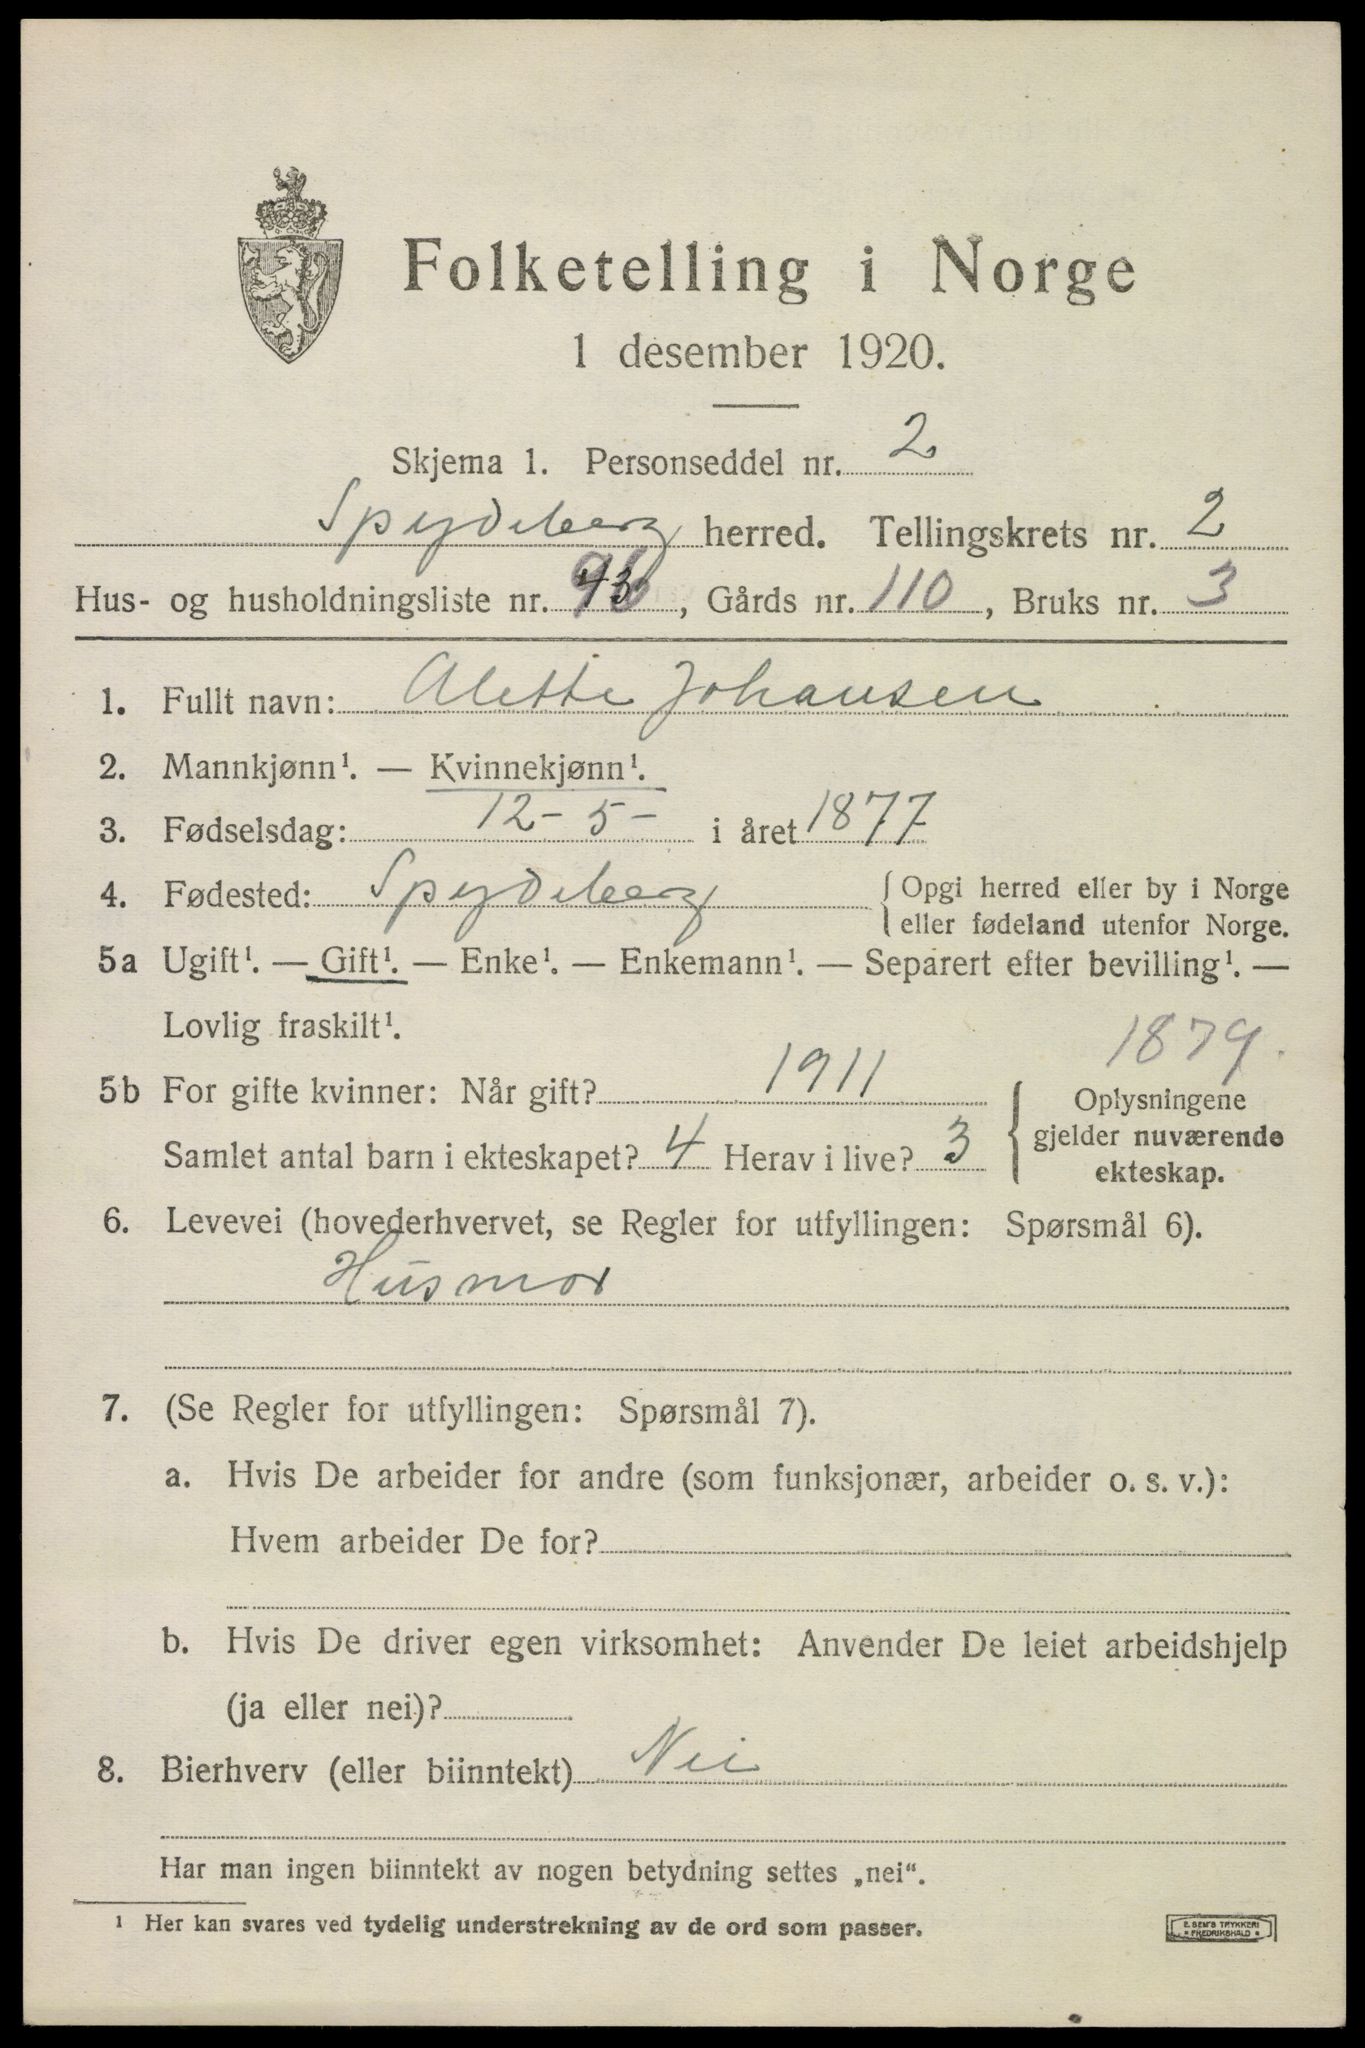 Folketelling i Norge
1 desember 1920.
Skjema 1. Personseddel nr. 2
Spydeberg herred. Tellingskrets nr. 2
Hus- og husholdningsliste nr. 43, Gårds nr. 110, Bruks nr. 3
1. Fullt navn: Alette Johansen
2. Mannkjønn¹. — Kvinnekjønn¹.
3. Fødselsdag: 12-5- i året 1877
4. Fødested: Spydeberg { Opgi herred eller by i Norge
eller fødeland utenfor Norge.
5a Ugift¹. — Gift¹. — Enke¹. — Enkemann¹. — Separert efter bevilling¹. —
Lovlig fraskilt¹.
1879.
5b For gifte kvinner: Når gift? 1911
Samlet antal barn i ekteskapet? 4 Herav i live? 3
{ Oplysningene
gjelder nuværende
ekteskap.
6. Levevei (hovederhvervet, se Regler for utfyllingen: Spørsmål 6).
Husmor
7. (Se Regler for utfyllingen: Spørsmål 7).
a. Hvis De arbeider for andre (som funksjonær, arbeider o. s. v.):
Hvem arbeider De for?
b. Hvis De driver egen virksomhet: Anvender De leiet arbeidshjelp
(ja eller nei)?
8. Bierhverv (eller biinntekt) Nei
Har man ingen biinntekt av nogen betydning settes „nei“.
¹ Her kan svares ved tydelig understrekning av de ord som passer.
E. SEM'S TRYKKERI
* FREDRIKSHALD *